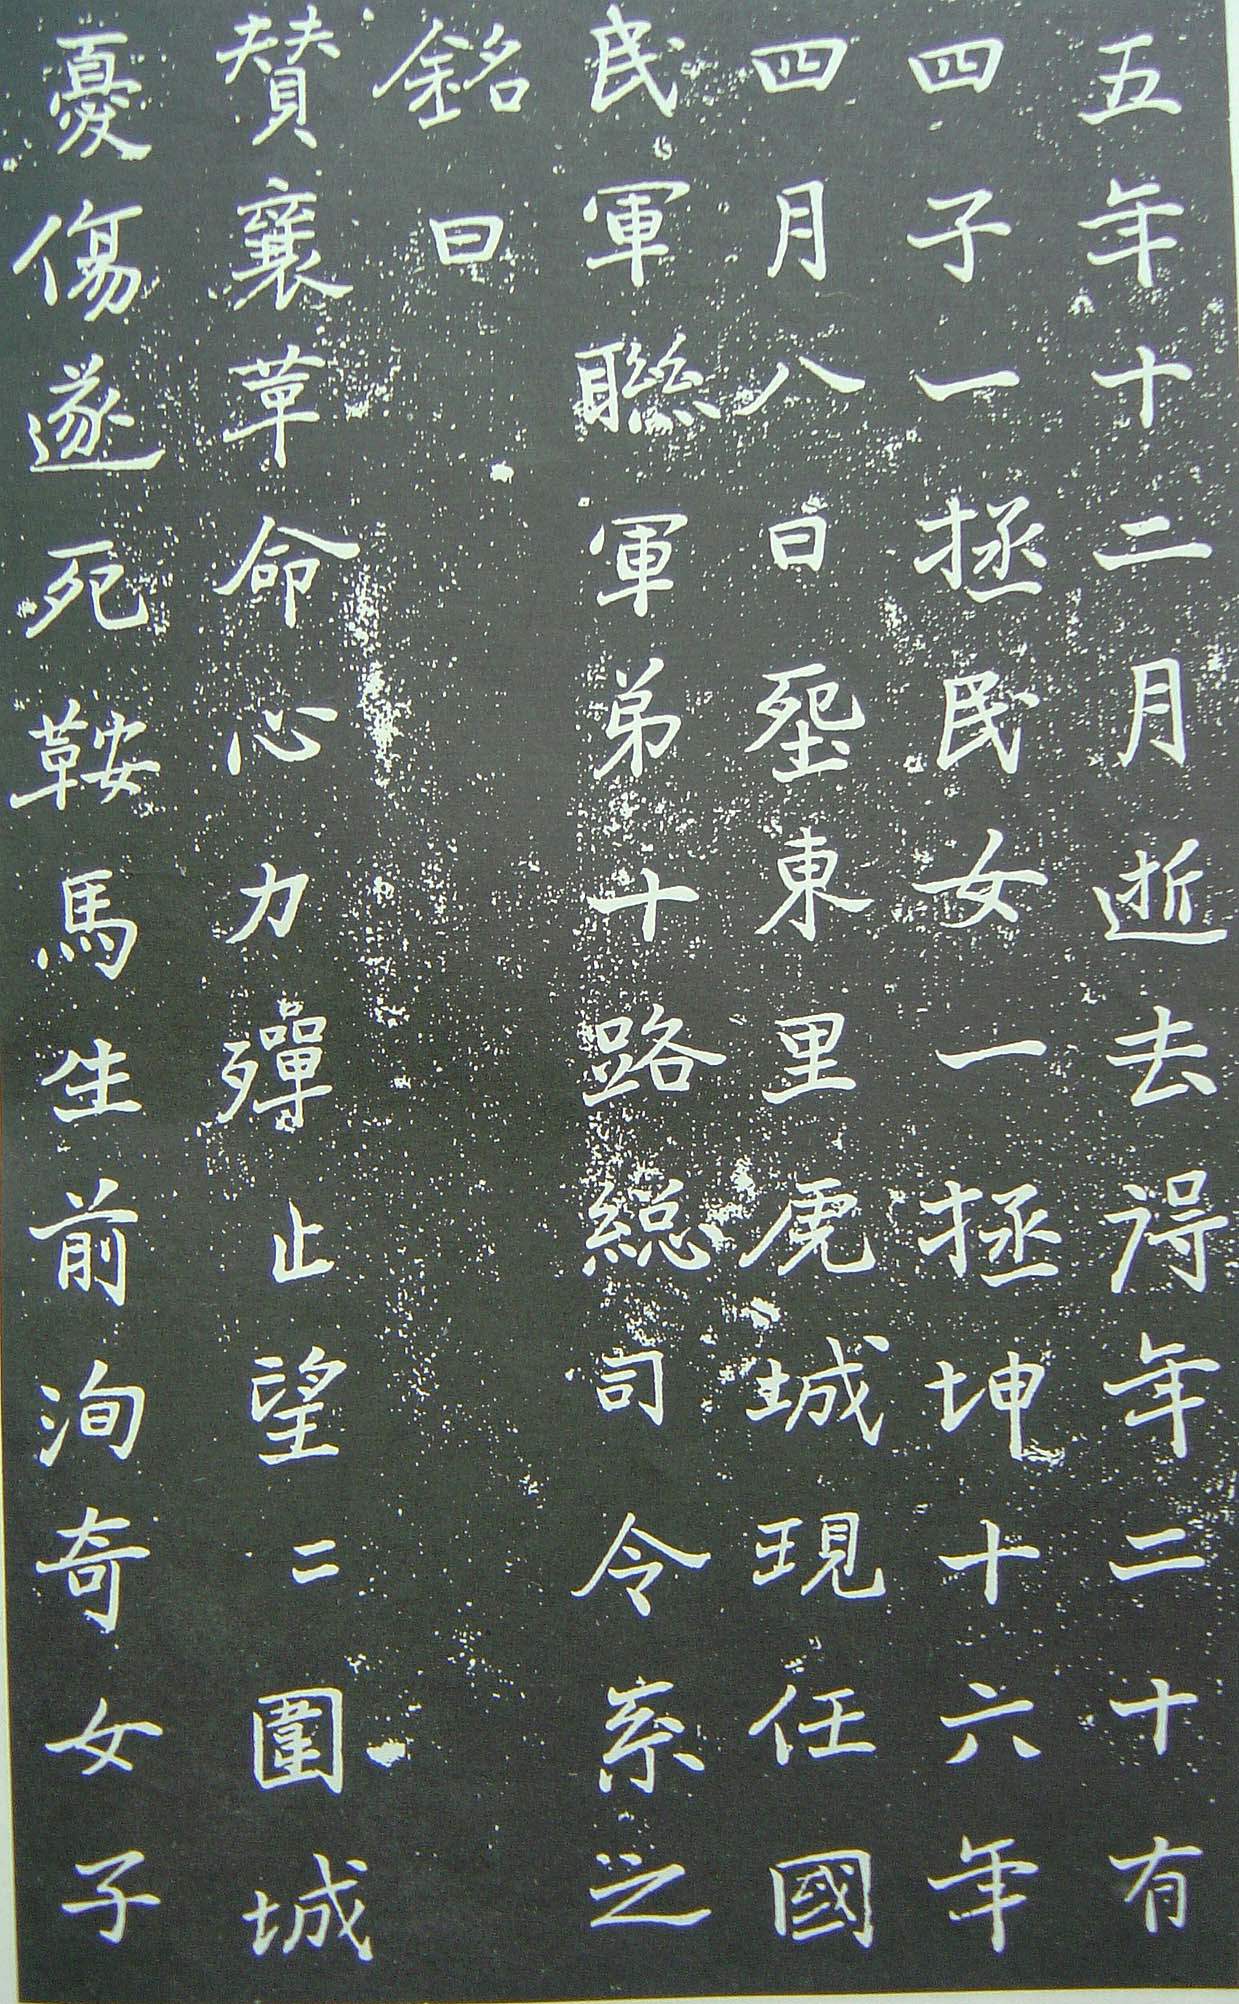 五年十二月逝去淂年二十有
四子一拯民女一拯坤十六年
四月八日塟東里虎城現任國
民軍聯軍弟十路緫司令系之
銘曰
賛襄革命心力殫止望二圍城
憂傷遂死鞍馬生前洵奇女子